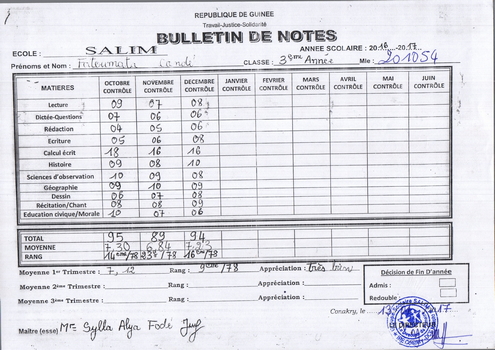 REPUBLIQUE DE GUINEE
Travail-Justice-Solidarité
BULLETIN DE NOTES
ECOLE : SALIM ANNEE SCOLAIRE : 2016 -2017
Prénoms et Nom : Fatoumata Condé CLASSE : 3ème Année Mle : 201054
MATIERES OCTOBRE CONTRÔLE NOVEMBRE CONTRÔLE DECEMBRE CONTRÔLE JANVIER CONTRÔLE FEVRIER CONTRÔLE MARS CONTRÔLE AVRIL CONTRÔLE MAI CONTRÔLE JUIN CONTRÔLE
Lecture 09 07 08
Dictée-Questions 07 06 06
Rédaction 04 05 06
Ecriture 05 06 08
Calcul écrit 18 16 16
Histoire 09 08 10
Sciences d'observation 10 09 08
Géographie 09 10 09
Dessin 06 07 08
Récitation/Chant 08 08 09
Education civique/Morale 10 07 06
TOTAL 95 89 94
MOYENNE 7,30 6,84 7,23
RANG 14ème/78 23è/78 16ème/78
Moyenne 1er Trimestre : 7,12 Rang : 9ème/78 Appréciation : très bien
Moyenne 2ème Trimestre : Rang : Appréciation :
Moyenne 3ème Trimestre : Rang : Appréciation :
Décision de Fin D'année
Admis :
Redouble :
Conakry, le 13 17
Maître (esse) Mr Sylla Alya Fodé